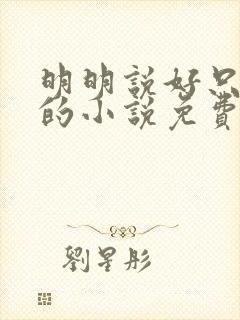 明明說好只
的小說免費
劉星彤